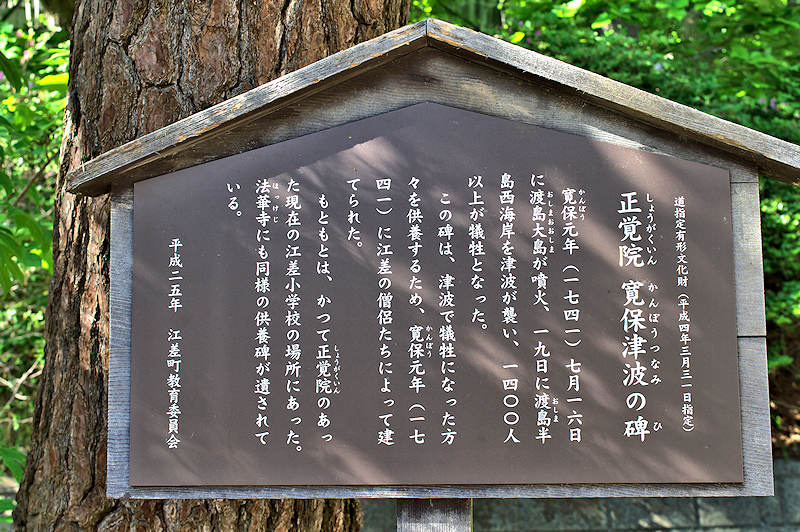 道指定有形文化財(平成四年三月三一日指定)
正覚院 寛保津波の碑
しょうがくいん かんぽうつなみ ひ
寛保元年(一七四一)七月一六日
かんぽう
に渡島大島が噴火、一九日に渡島半
おしまおおしま おしま
島西海岸を津波が襲い、一四〇〇人
以上が犠牲となった。
この碑は、津波で犠牲になった方
々を供養するため、寛保元年(一七
かんぽう
四一)に江差の僧侶たちによって建
てられた。
もともとは、かつて正覚院のあっ
しょうがくいん
た現在の江差小学校の場所にあった。
法華寺にも同様の供養碑が遺されて
ほっけじ
いる。
平成二五年 江差町教育委員会